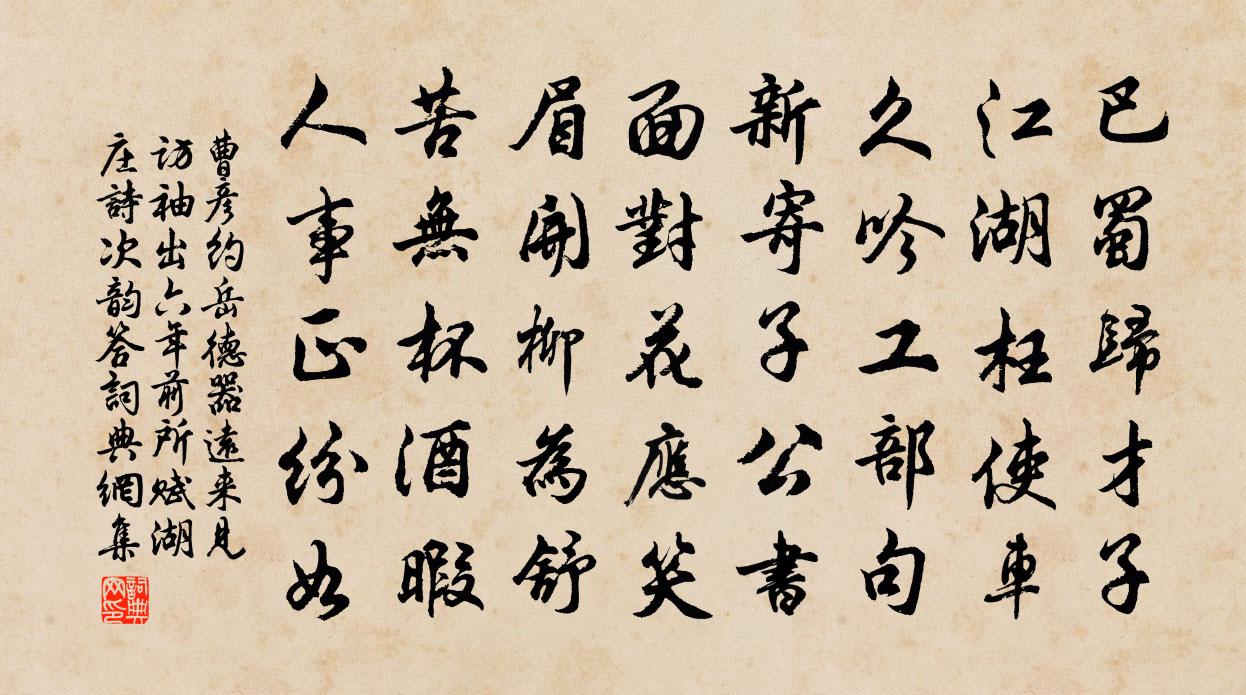 巴蜀歸才子
江湖枉使車
久吟工部句
新寄子公書
面對花應笑
眉開柳為舒
苦無杯酒暇
人事正紛如
曹彥約岳德器遠来見
訪袖出六年前所賦湖
庄詩次韵答詞典網集
詞典
网印